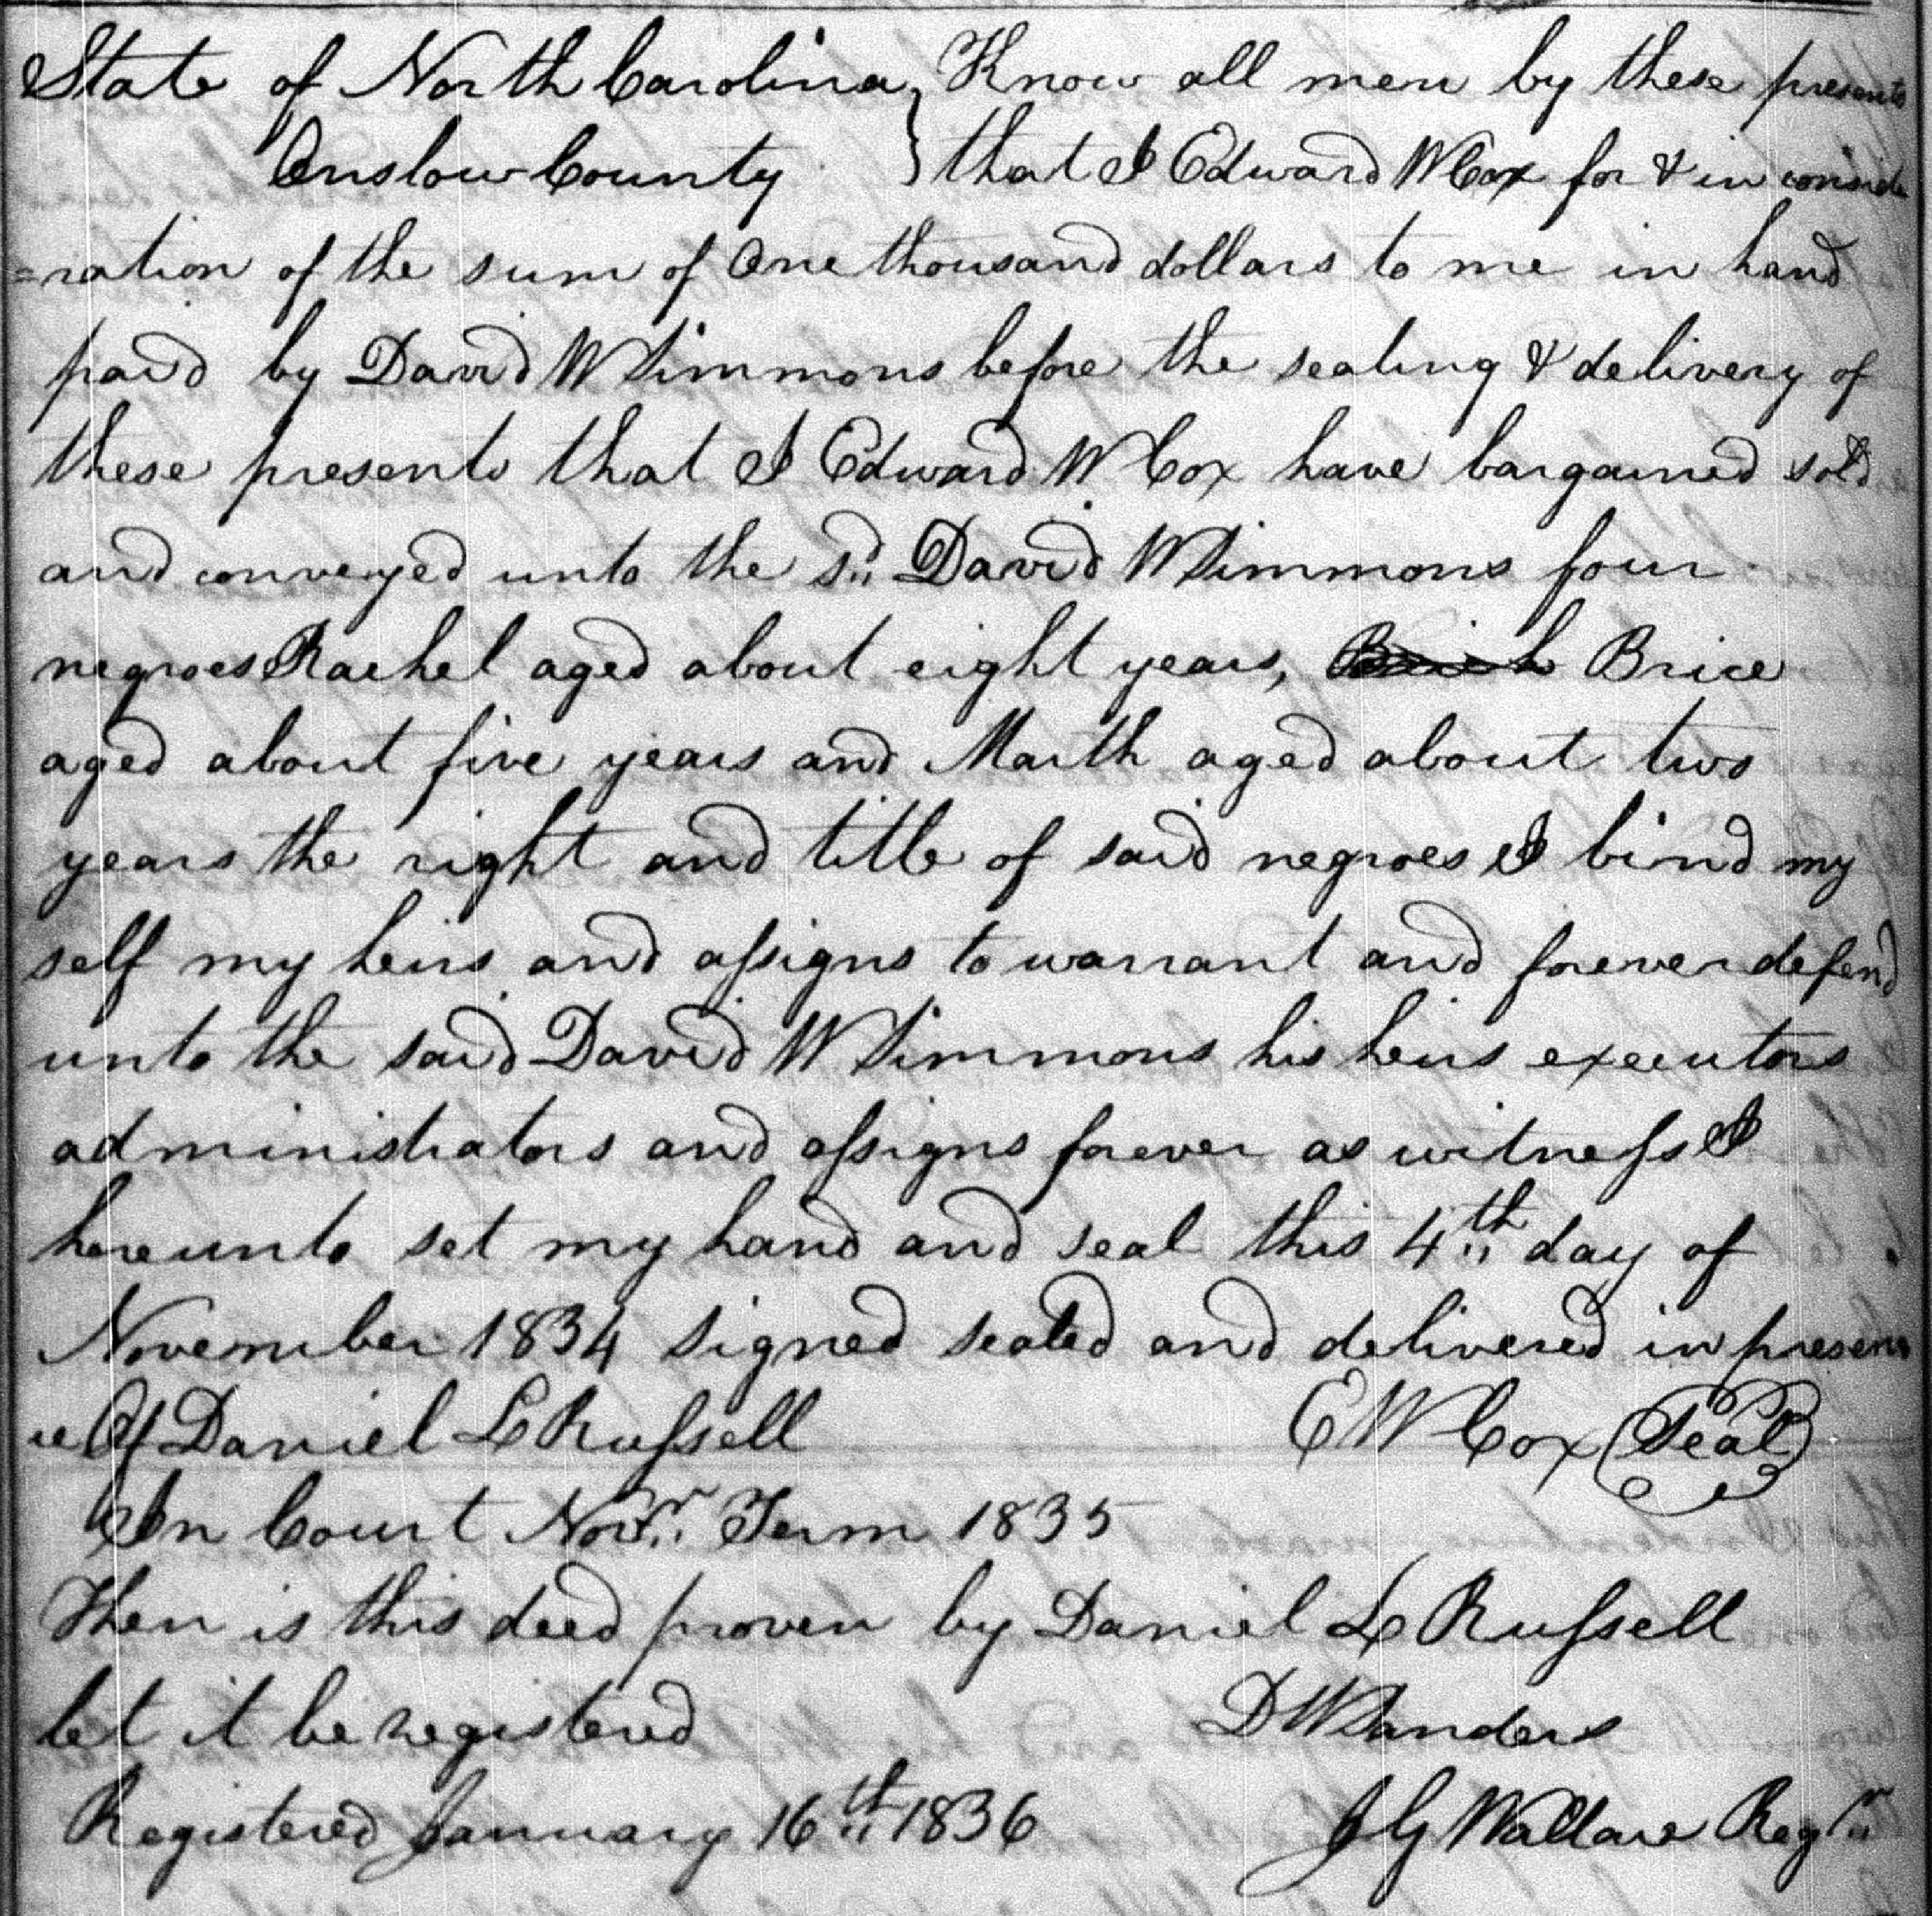 State of North Carolina } Know all men by these presents
Onslow County } that I Edward W Cox for & in conside
=ration of the sum of One thousand dollars to me in hand
paid by David W Simmons before the sealing & delivery of
these presents that I Edward W Cox have bargained sold
and conveyed unto the sd. David W Simmons four
negroes Rachel aged about eight years, Brice
aged about five years and Marth aged about two
years the right and title of said negroes I bind my
self my heirs and assigns to warrant and forever defend
unto the said David W Simmons his heirs executors
administrators and assigns forever as witness I
hereunto set my hand and seal this 4th day of
November 1834 signed sealed and delivered in presen
ce Of Daniel L Russell E W Cox (Seal)
In Court Novr. Term 1835
Then is this deed proven by Daniel L Russell
let it be registered D W Sanders
Registered January 16th 1836 J G Wallace Regr.